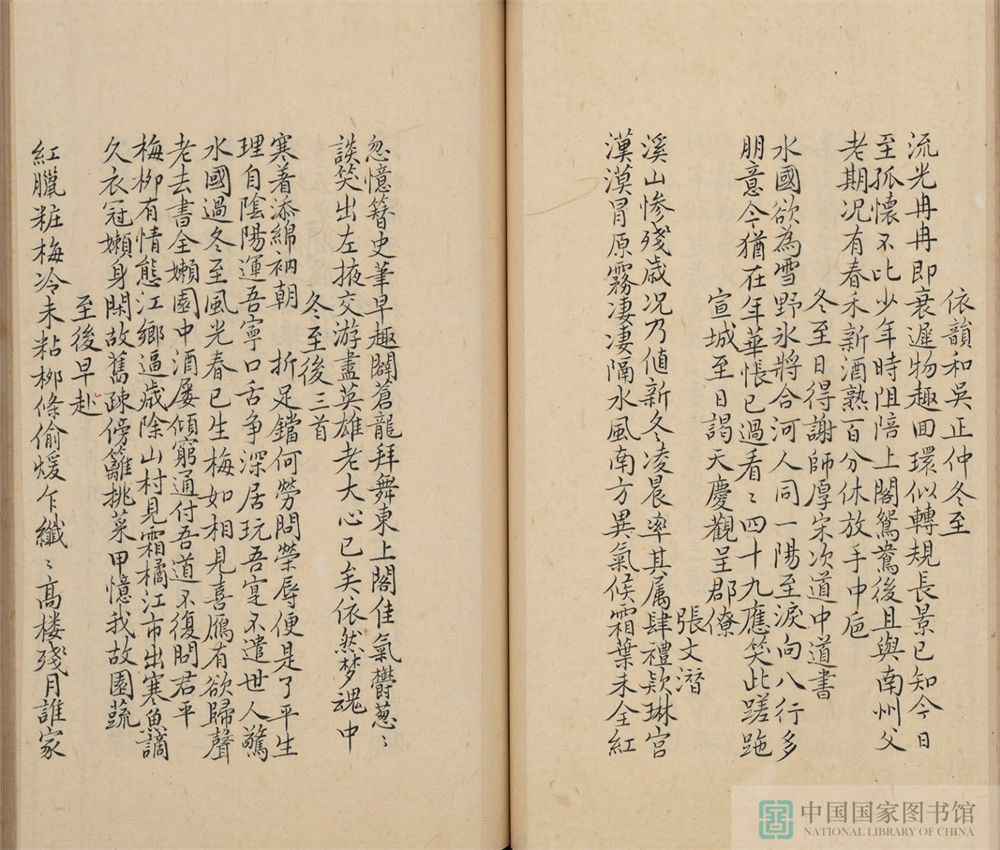 依韻和吳正仲冬至
流光冉冉即衰遲物趣回環似轉規長景已知今日
至孤懷不比少年時阻陪上閣鴛鴦後且與南州父
老期况有春禾新酒熟百分休放手中巵
冬至日得謝師厚宋次道中道書
水國欲為雪野氷將合河人同一陽至淚向八行多
朋意今猶在年華悵已過看〻四十九應笑此蹉跎
宣城至日謁天慶觀呈郡僚
張文潛
溪山慘殘歳况乃値新冬凌晨率其属肆禮欵琳宮
漠漠冒原霧凄凄隔水風南方異氣候霜葉未全紅
忽憶簪史筆早趣闢蒼龍拜舞東上閣佳氣欝葱〻
談笑出左掖交游盡英雄老大心已矣依然梦魂中
冬至後三首
寒着添綿衲朝 折足鐺何勞問榮辱便是了平生
理自陰陽運吾寧口舌争深居玩吾寔不遣世人驚
水國過冬至風光春已生梅如相見喜鴈有欲歸聲
老去書全嬾園中酒屡傾窮通付吾道不復問君平
梅柳有情態江鄉逼歳除山村見霜橘江市出寒魚謫
久衣冠嬾身閑故舊疎傍籬挑菜甲憶我故園蔬
至後早赴
紅臘粧梅冷未粘栁條偷煖乍纖〻高楼殘月誰家
中国国家图书馆
NATIONAL LIBRARY OF CHINA